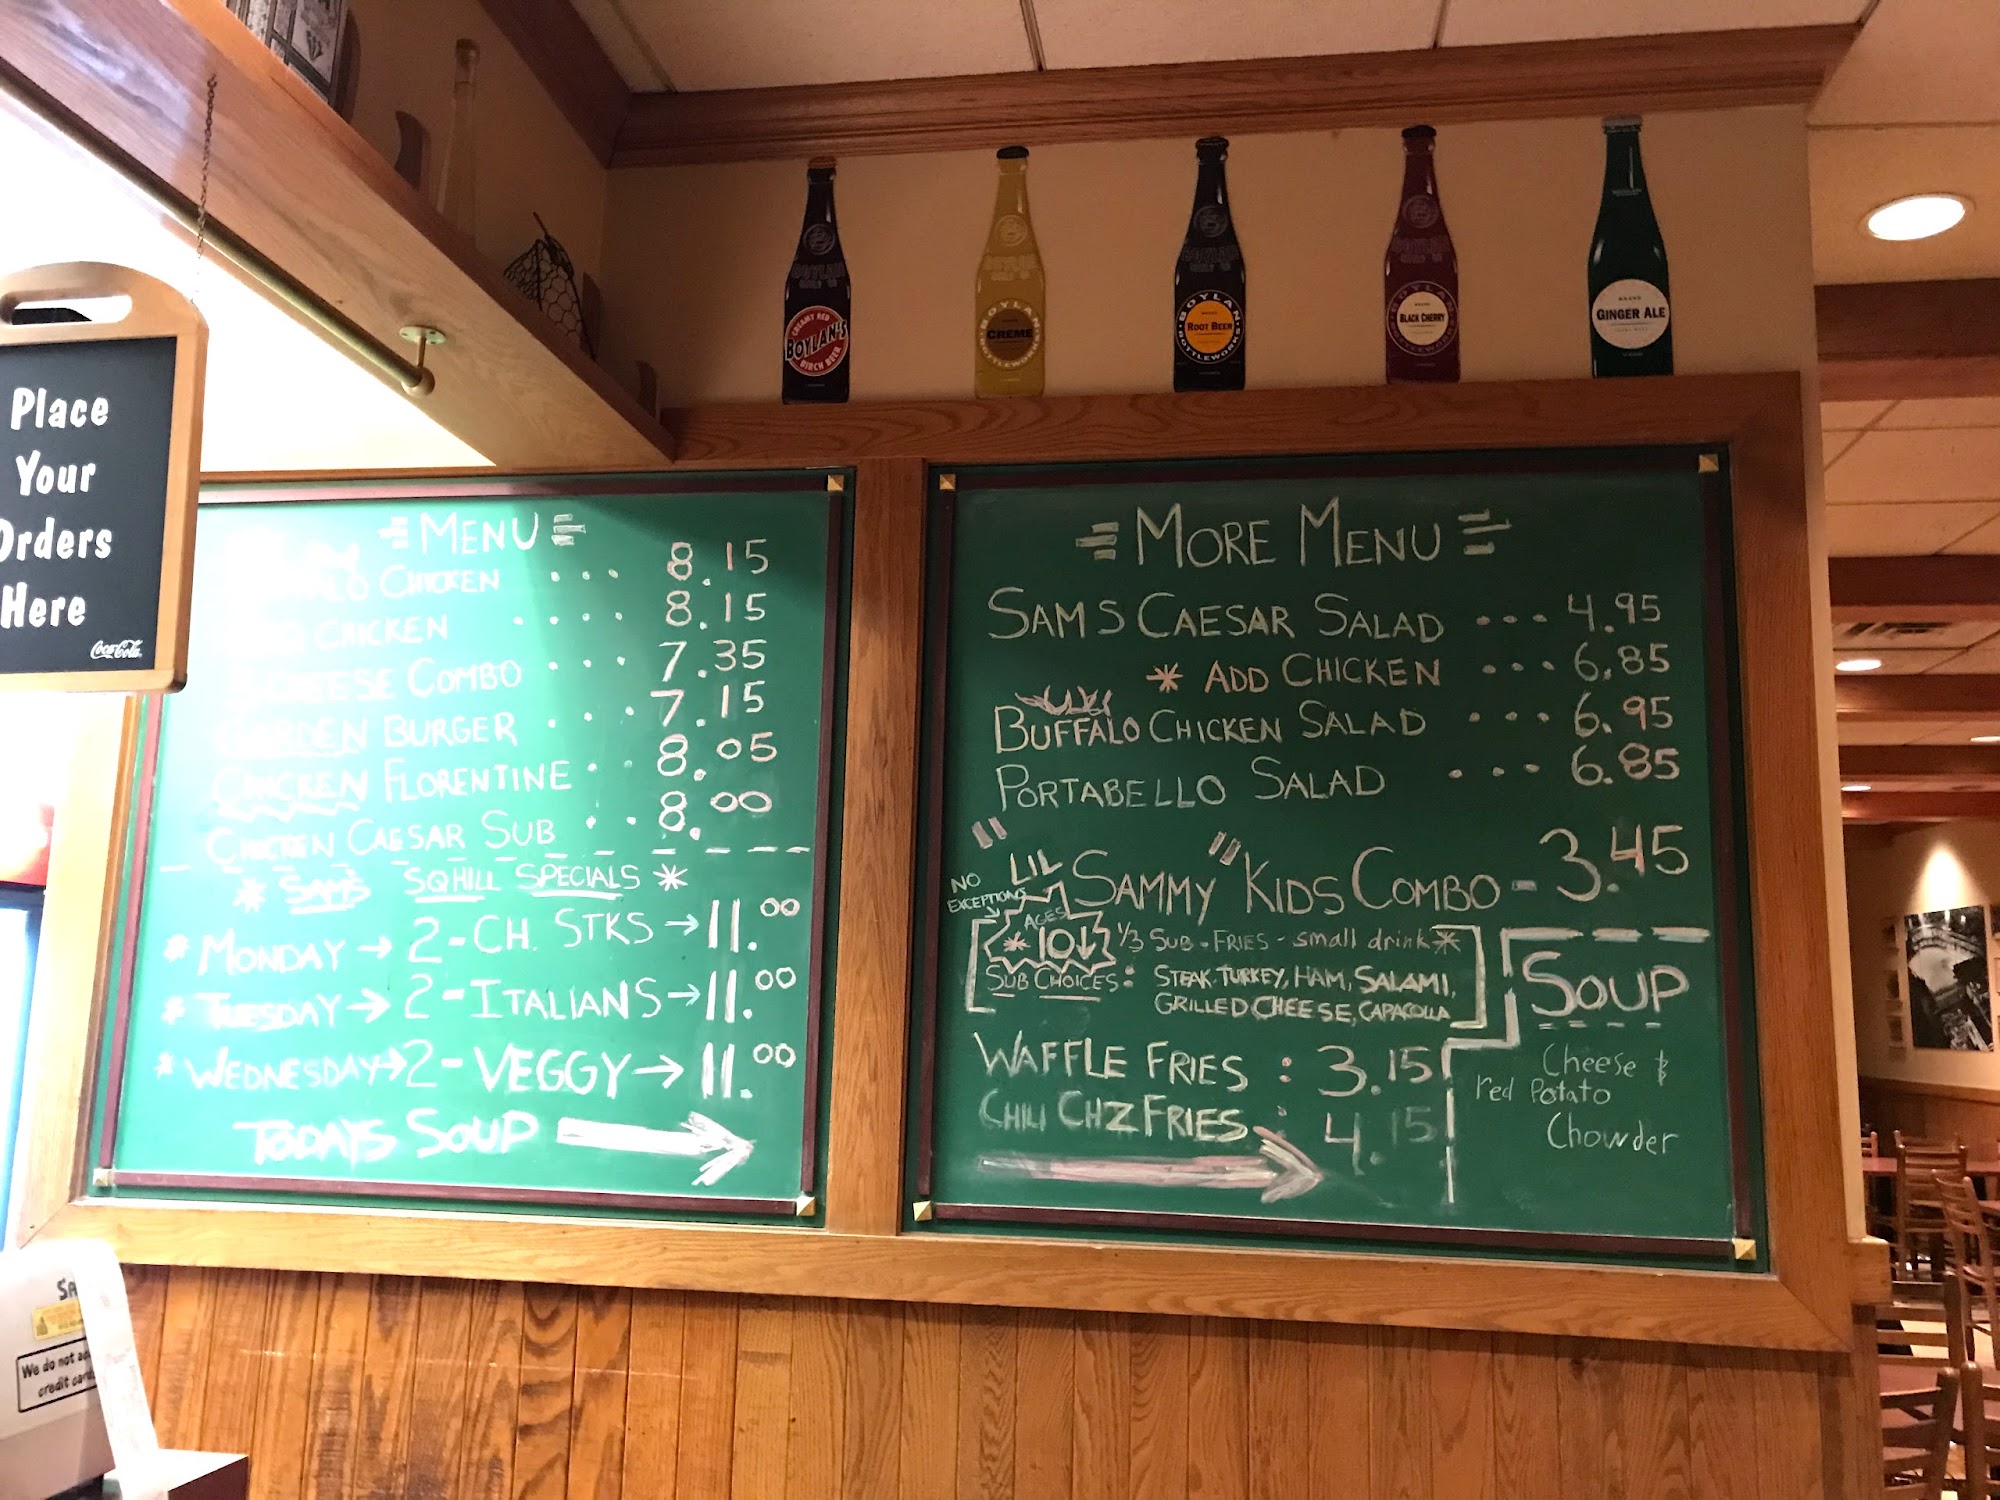 Place
Your
Orders
Here
Coca-Cola
CREAMY RED
BOYLAN'S
BIRCH BEER
BOYLAN
CREME
BOTTLEWORKS
BOYLAN
ROOT BEER
BOTTLEWORKS
BOYLAN
BLACK CHERRY
BOTTLEWORKS
BRAND
GINGER ALE
MENU
CHICKEN ... 8.15
CHICKEN .... 8.15
CHEESE COMBO .... 7.35
GARDEN BURGER .... 7.15
CHICKEN FLORENTINE .. 8.05
CHICKEN CAESAR SUB .. 8.00
* SAMS SQHILL SPECIALS *
* MONDAY → 2-CH. STKS → 11.00
* TUESDAY → 2-ITALIANS → 11.00
* WEDNESDAY → 2-VEGGY → 11.00
TODAYS SOUP →
MORE MENU
SAMS CAESAR SALAD ... 4.95
* ADD CHICKEN ... 6.85
BUFFALO CHICKEN SALAD ... 6.95
PORTABELLO SALAD ... 6.85
"LIL SAMMY" KIDS COMBO - 3.45
NO EXCEPTIONS
AGES
* 10↓ 1/3 SUB - FRIES - small drink *
SUB CHOICES: STEAK, TURKEY, HAM, SALAMI,
GRILLED CHEESE, CAPACOLLA
WAFFLE FRIES : 3.15
CHILI CHZ FRIES : 4.15
SOUP
Cheese &
red Potato
Chowder
We do not
credit card